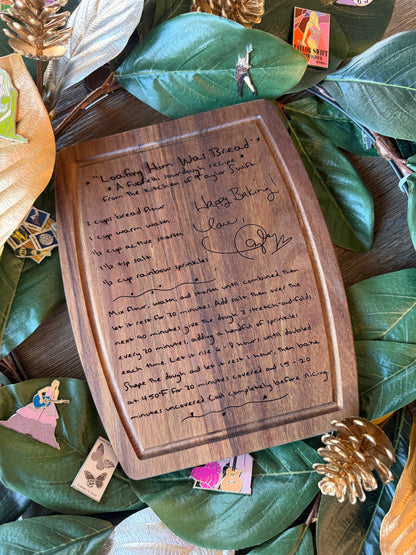 "Loafing Him Was Bread"
A Funfetti sourdough recipe
From the kitchen of Taylor Swift
2 cups bread flour
1 cup warm water
1/2 cup active starter
1 1/2 tsp salt
1/2 cup rainbow sprinkles
Happy Baking!
Love,
Taylor
Mix flour, water, and starter until combined, then
let it rest for 30 minutes. Add salt, then over the
next 90 minutes give the dough 3 stretch-and-folds,
every 30 minutes, adding a handful of sprinkles
each time. Let it rise 6-8 hours until doubled.
Shape the dough and let it rest 1 hour, then bake
at 450°F for 30 minutes covered and 15-20
minutes uncovered. Cool completely before slicing
TAYLOR SWIFT